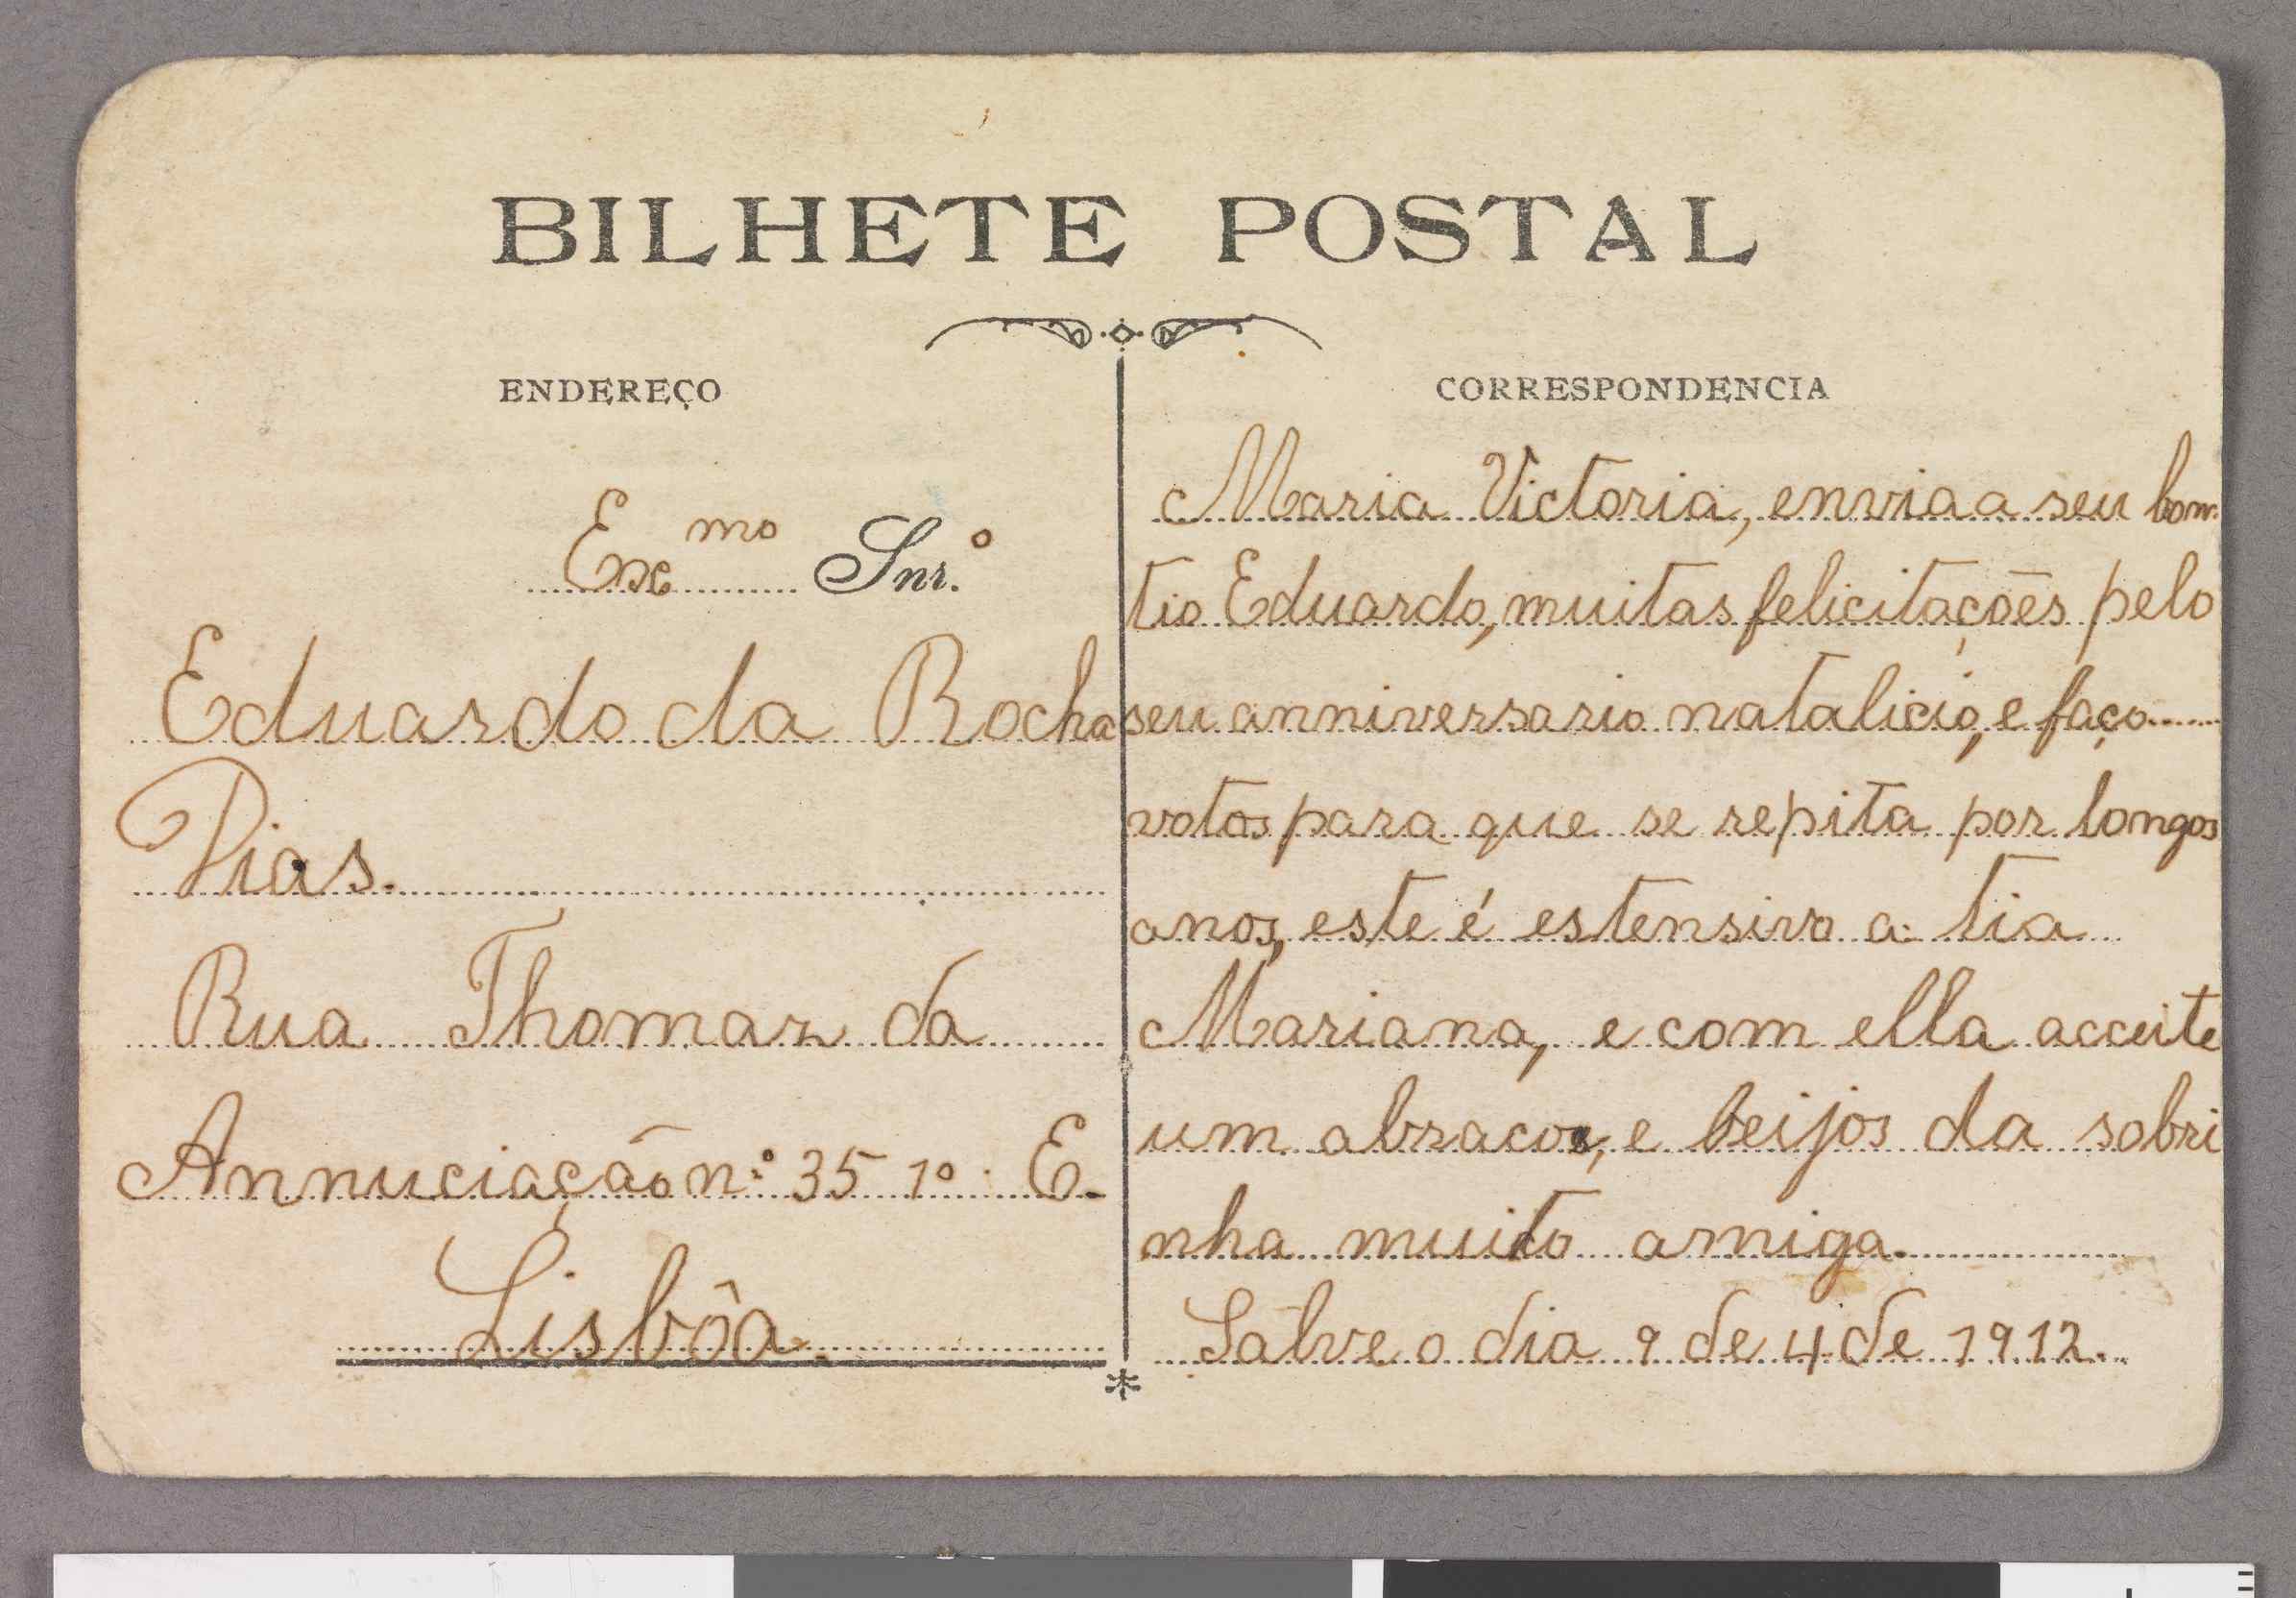 BILHETE POSTAL
ENDEREÇO
Exc mo Snr.º
Eduardo da Rocha
Dias.
Rua Thomaz da
Annuciação n.º 35 1º E.
Lisbôa.
CORRESPONDENCIA
Maria Victoria, envia a seu bom
tio Eduardo, muitas felicitações pelo
seu anniversario natalicio, e faço
votos para que se repita por longos
anos, este é estensivo a tia
Mariana, e com ella acceite
um abraços, e beijos da sobri
nha muito amiga.
Salve o dia 9 de 4 de 1912.